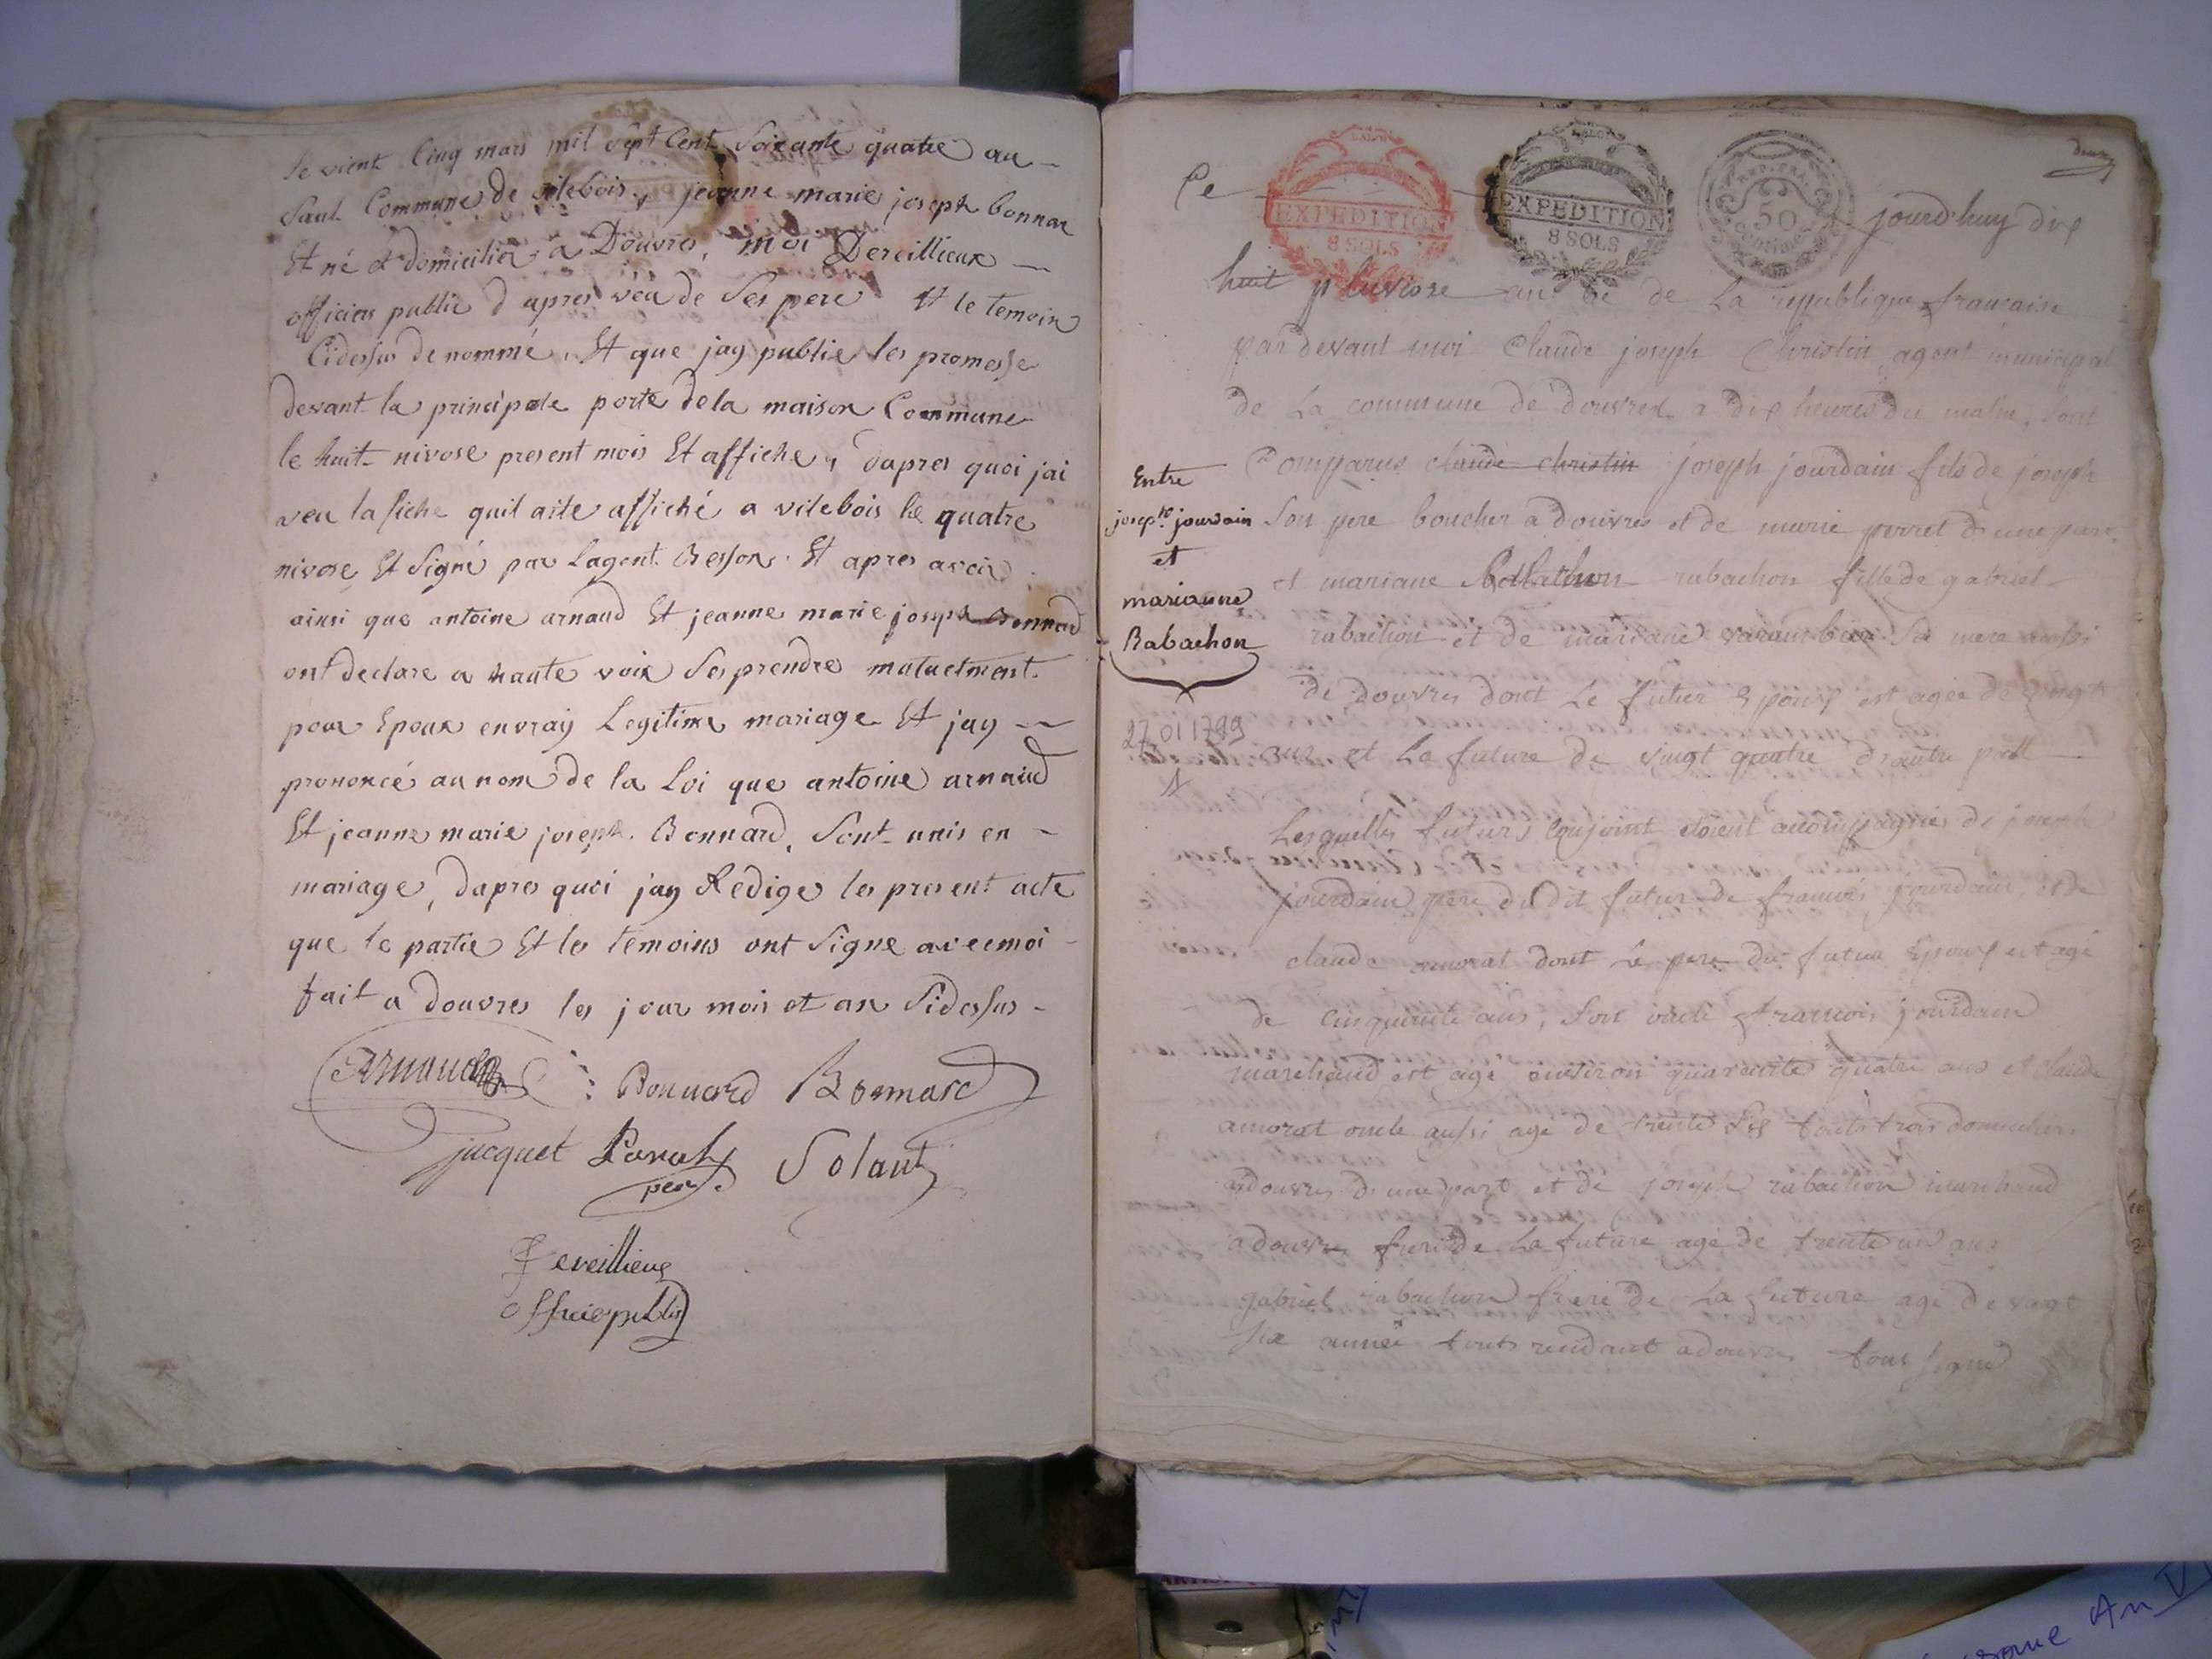 le vient Cinq mars mil sept Cent Soixante quatre au
Saul Commune de vilebois, jeanne marie joseph bonnar
Et né et domicilier a Douvres, moi Dereillieux
officier public d apres véu de Ses pere Et le temoin
Cidessus denommé. Et que jay publie les promesse
devant la principale porte dela maison Commune
le huit nivose present mois Et affiche, dapres quoi jai
veu lafiche quil aite affiché a vilebois le quatre
nivose Et Signé par Lagent Besson. Et apres avoir
ainsi que antoine arnaud Et jeanne marie joseph Bonnard
ont declare a haute voix Sesprendre mutuelment
pour Epoux envray Legitime mariage Et jay
prononcé aunom de la Loi que antoine arnaud
Et jeanne marie joseph Bonnard, Sont unis en
mariage, dapres quoi jay Redige les present acte
que le partie Et les temoins ont Signe avecmoi
fait a douvres les jour mois et an Sidessus
Arnaud Bonnard Bonnard
jacquet Ravat Solant
pere
Dereillieux
officiepublic
deux
EXPEDITION
8 SOLS
EXPEDITION
8 SOLS
50
centimes
Ce jourd'huy dix
huit pluviose an 7e de La republique francaise
par devant moi Claude joseph Christin agent municipal
de La commune de douvres a dix heures du matin, sont
Comparus claude christin joseph jourdain fils de joseph
Son pere boucher a douvres et de marie perret d'une part
et mariane rabachon fille de gabriel
rabachon et de mariane sa mere aussi
de douvres dont Le futur Epoux est agée de vingt
ans et La future de vingt quatre d'autre part
Lesquelles futurs Conjoint etoient accompagnés de joseph
jourdain pere dudit futur de francois jourdain et de
claude amorat dont Le pere du futur Epoux est agé
de cinquante ans, Son oncle francois jourdain
marchand est agé environ quarante quatre ans et claude
amorat oncle aussi agé de trente six touts trois domiciliers
adouvres d'une part et de joseph rabachon marchand
adouvres frere de La future agé de trente un ans
gabriel rabachon frere de La future agé de vingt
six année touts rendant adouvres tous signé
Entre
joseph jourdain
et
marianne
Rabachon
27 01 1799
An V